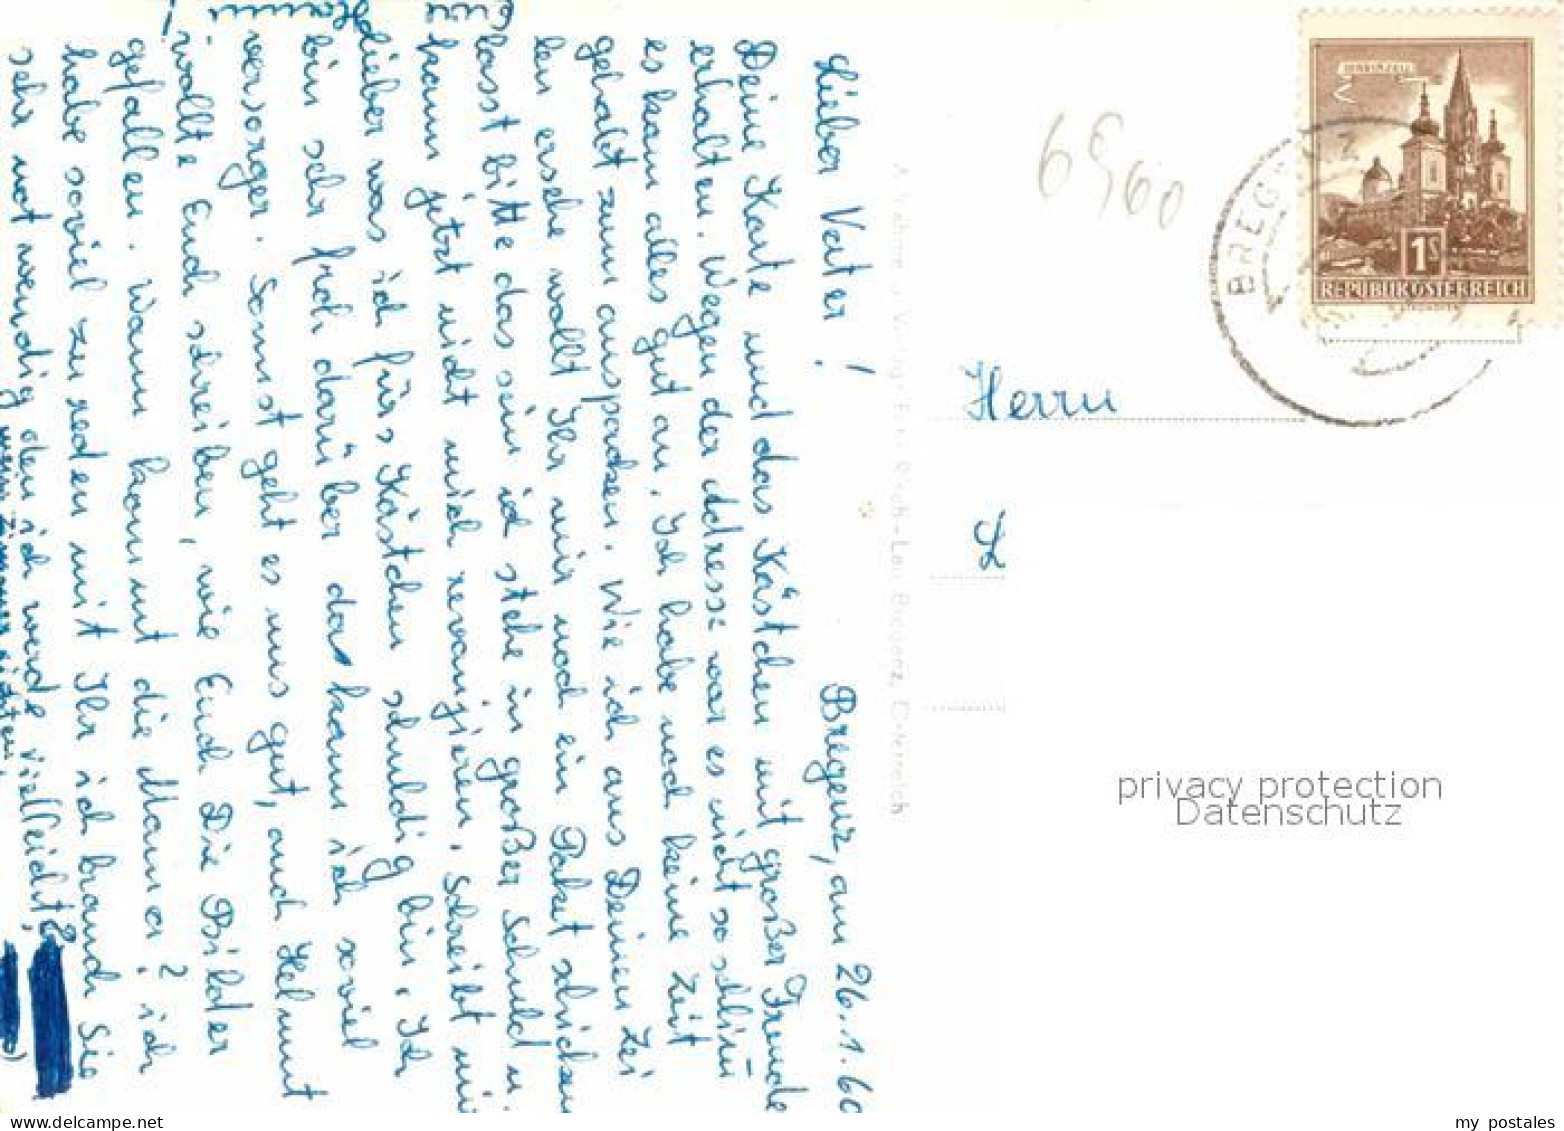 Bregenz, am 26.1.60
Lieber Vater!
Deine Karte und das Kästchen mit großer Freude
erhalten. Wegen der Adresse war es nicht so schlim̄
es kam alles gut an. Ich habe noch keine Zeit
gehabt zum auspacken. Wie ich aus Deinen Zei
len ersehe wollt Ihr mir noch ein Paket schicken
lasst bitte das sein ich stehe in großer Schuld u.
kann jetzt nicht mich revanjieren. Schreibt mir
lieber was ich fürs Kästchen schuldig bin. Ich
bin sehr froh darüber da kann ich soviel
versorgen. Sonnst geht es uns gut, auch Helmut
wollte Euch schreiben, wie Euch Die Bilder
gefallen. Wann kommt die Mama? ich
habe soviel zu reden mit Ihr ich brauch Sie
sehr notwendig den ich werde vielleicht
Herrn
L
6 60
MARIAZELL
1S
REPUBLIK ÖSTERREICH
BREGENZ
Bregenz, Österreich
privacy protection
Datenschutz
my postales